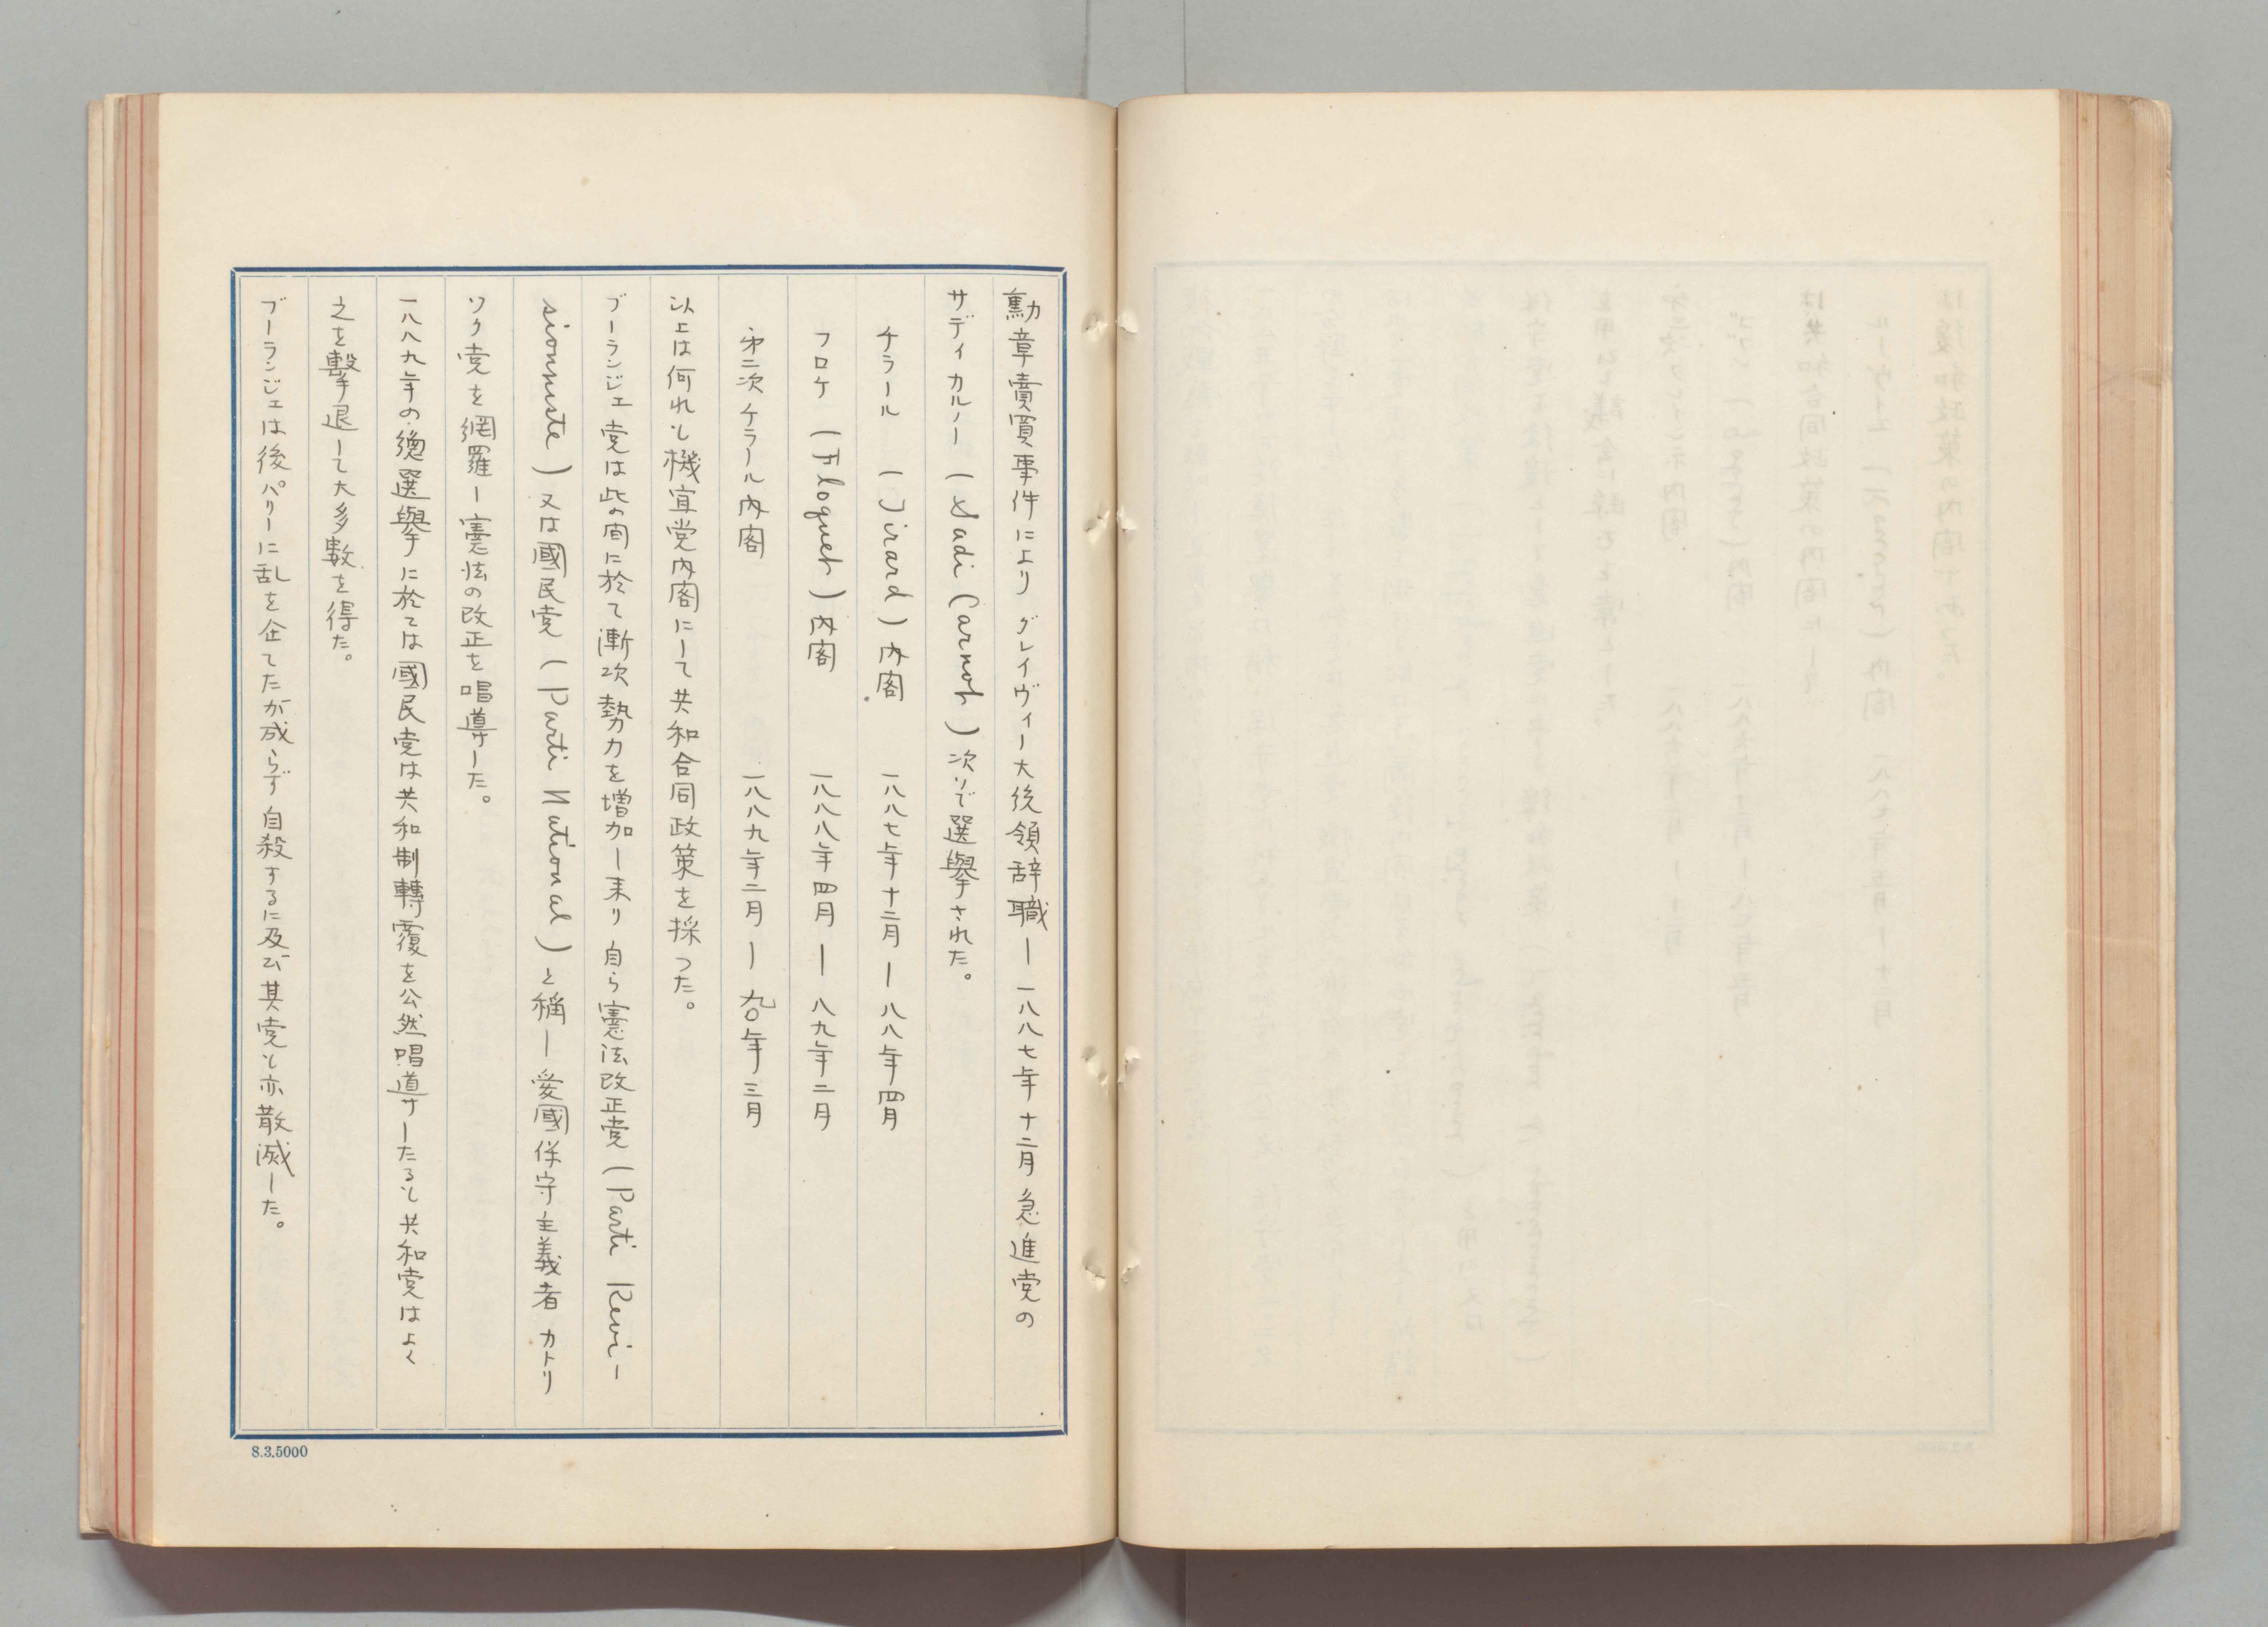 勳章賣買事件によりグレイヴィー大統領辞職ー一八八七年十二月急進党の
サディカルノー(Sadi Carnot)次いで選擧された。
チラール(Tirard)内閣 一八八七年十二月ー八八年四月
フロケ(Floquet)内閣 一八八八年四月ー八九年二月
第二次チラール内閣 一八八九年二月ー九〇年三月
以上は何れも機宜党内閣にして共和合同政策を採つた。
ブーランジェ党は此の間に於て漸次勢力を増加し来り自ら憲法改正党(Parti Revi-
sionniste)又は國民党(Parti National)と稱し愛國保守主義者カトリ
ツク党を網羅し憲法の改正を唱導した。
一八八九年の總選擧に於ては國民党は共和制轉覆を公然唱導したるも共和党はよく
之を擊退して大多數を得た。
ブーランジェは後パリーに乱を企てたが成らず自殺するに及び其党も亦散滅した。
8.3.5000